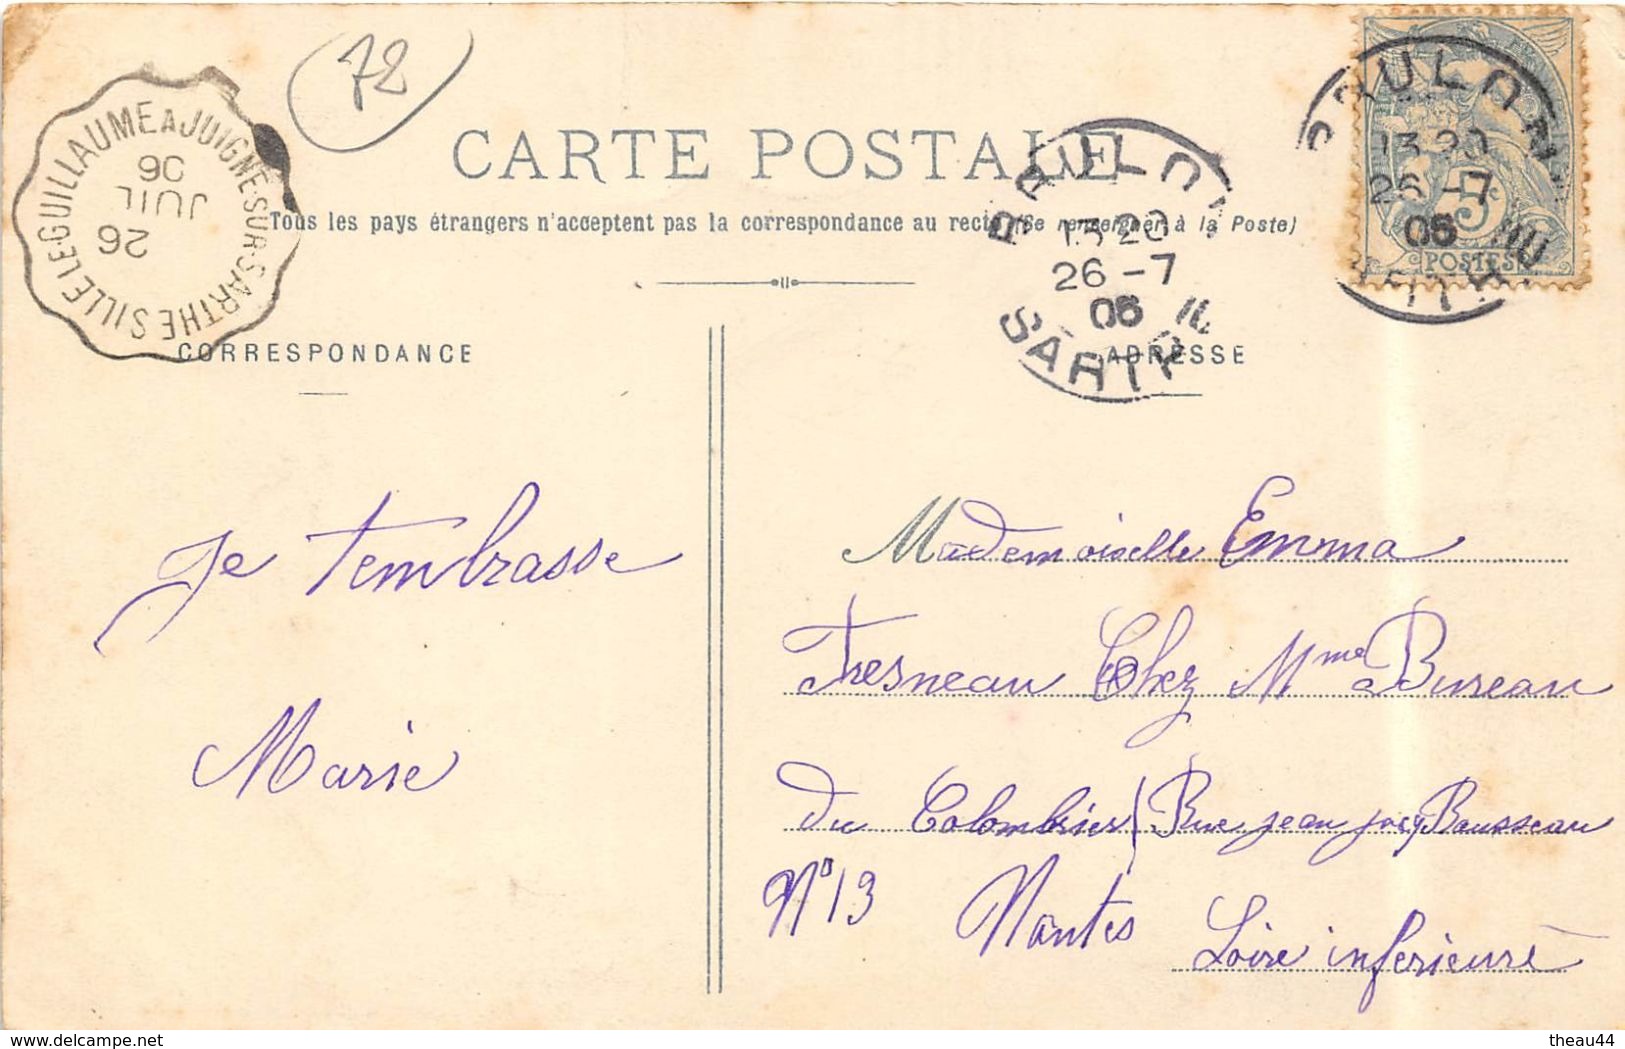 72
SILLE-LE-GUILLAUME A JUIGNE-SUR-SARTHE
26
JUIL
06
CARTE POSTALE
Tous les pays étrangers n'acceptent pas la correspondance au recto (Se renseigner à la Poste)
BRULON
13 20
26 -7
06
SARTHE
BRULON
13 20
26 -7
06
SARTHE
5c
POSTES
CORRESPONDANCE
ADRESSE
Je t'embrasse
Marie
Mademoiselle Emma
Fresneau Chez Mme Bureau
du Colombier (Rue jean jacq Rousseau
N° 13 Nantes Loire inferieure
delcampe.net
theau44